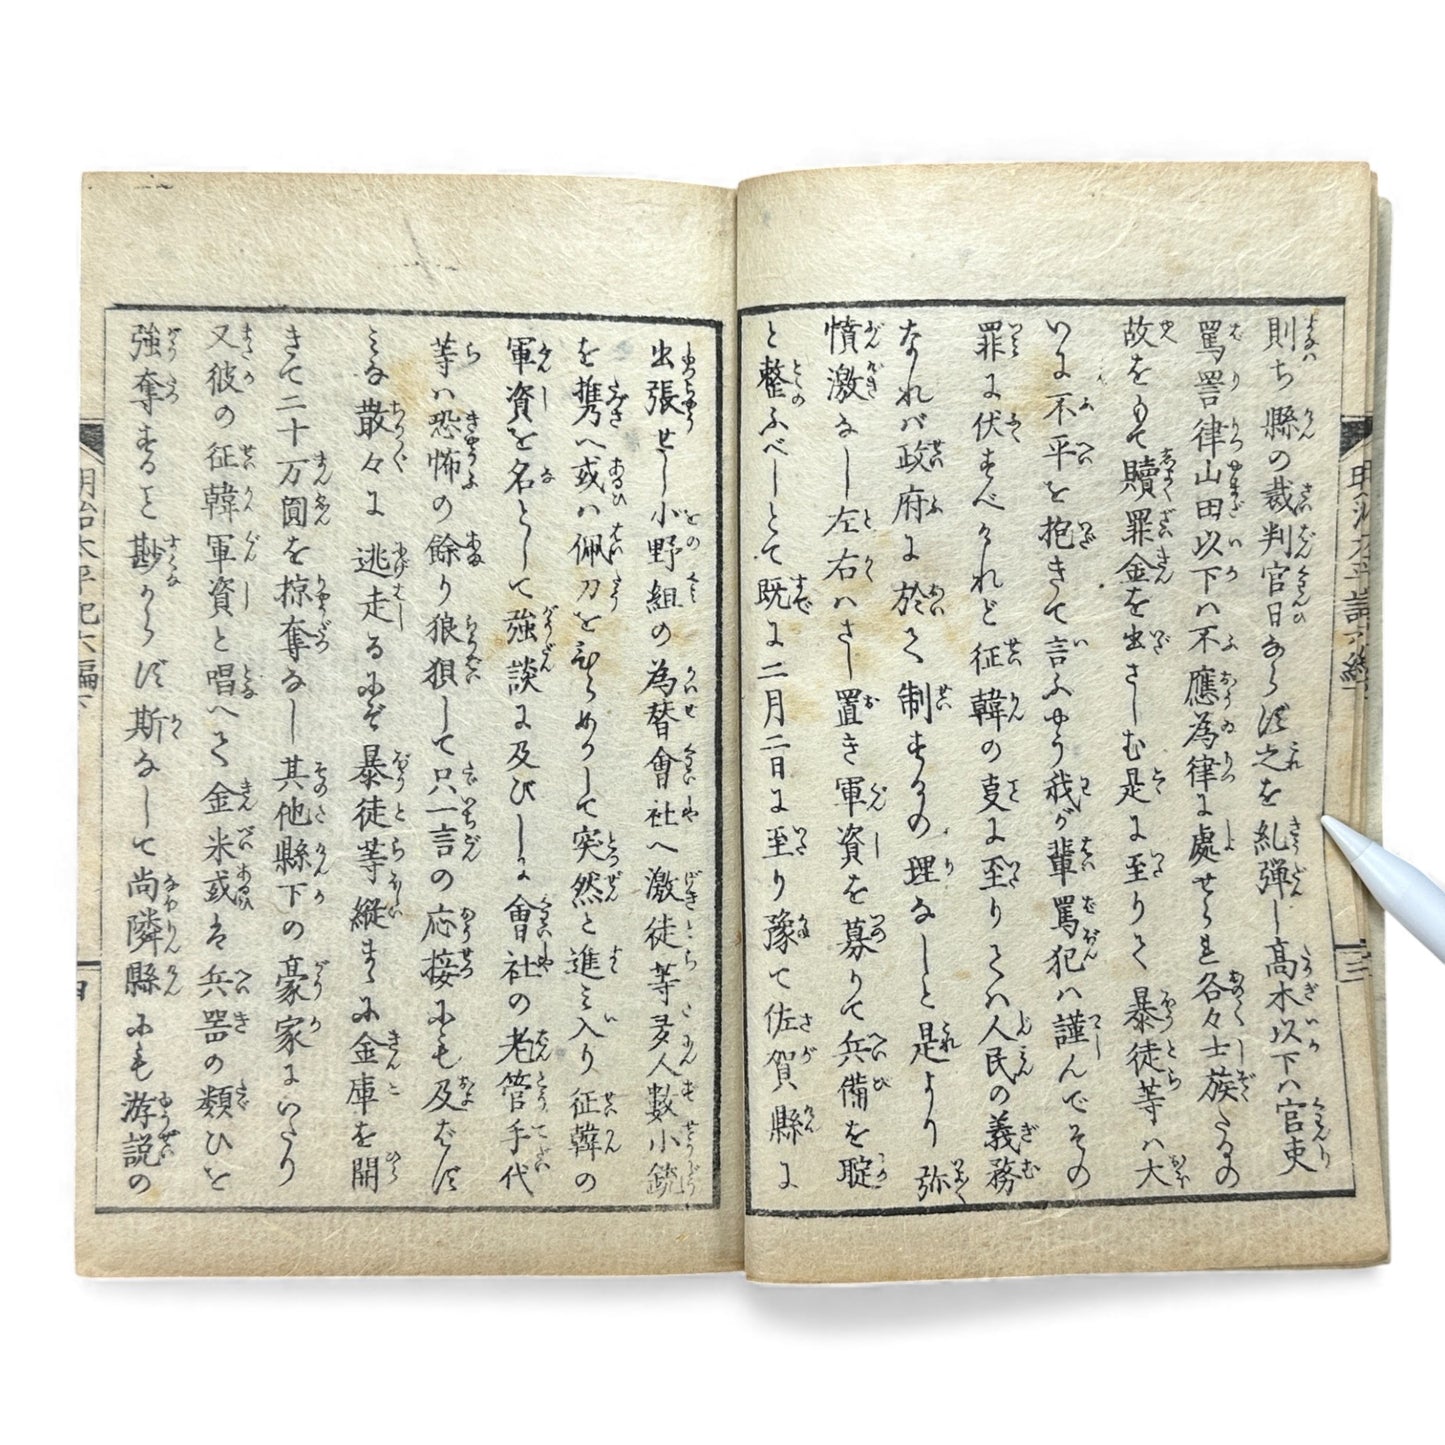 則ち縣の裁判官日あらず之を糺弾し高木以下ハ官吏
罵詈律山田以下ハ不應為律に處せられ各々士族たるの
故をもて贖罪金を出さしむ是に至りて暴徒等ハ大
いに不平を抱きて言ふやう我が輩罵犯ハ謹んでその
罪に伏すべけれど征韓の叓に至りてハ人民の義務
なれバ政府に於て制するの理なしと是より弥
憤激なし左右ハさし置き軍資を募りて兵備を聢
と整ふべしとて既に二月二日に至り豫て佐賀縣に
出張せし小野組の為替會社へ激徒等多人數小銃
を携へ或ハ佩刀をひらめかして突然と進み入り征韓の
軍資を名として強談に及びしに會社の老管手代
等ハ恐怖の餘り狼狽して只一言の応接にも及ばず
みな散々に逃走るにぞ暴徒等縦まゝに金庫を開
きて二十万圓を掠奪なし其他縣下の豪家にいたり
又彼の征韓軍資と唱へて金米或は兵器の類ひを
強奪すること尠からず斯なして尚隣縣にも游説の
明治太平記六編下
四